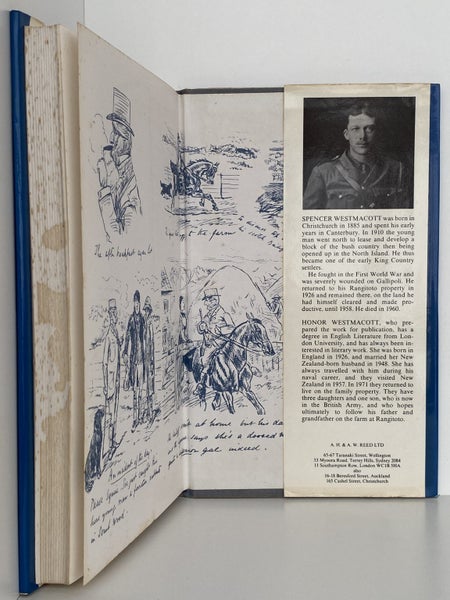 The
to the farm
An incident of the day
in
at home but his da
says she's a
gal indeed.
SPENCER WESTMACOTT was born in
Christchurch in 1885 and spent his early
years in Canterbury. In 1910 the young
man went north to lease and develop a
block of the bush country then being
opened up in the North Island. He thus
became one of the early King Country
settlers.
He fought in the First World War and
was severely wounded on Gallipoli. He
returned to his Rangitoto property in
1926 and remained there, on the land he
had himself cleared and made pro-
ductive, until 1958. He died in 1960.
HONOR WESTMACOTT, who pre-
pared the work for publication, has a
degree in English Literature from Lon-
don University, and has always been in-
terested in literary work. She was born in
England in 1926, and married her New
Zealand-born husband in 1948. She has
always travelled with him during his
naval career, and they visited New
Zealand in 1957. In 1971 they returned to
live on the family property. They have
three daughters and one son, who is now
in the British Army, and who hopes
ultimately to follow his father and
grandfather on the farm at Rangitoto.
A. H. & A. W. REED LTD
65-67 Taranaki Street, Wellington
53 Myoora Road, Terrey Hills, Sydney 2084
11 Southampton Row, London WC1B 5HA
also
16-18 Beresford Street, Auckland
165 Cashel Street, Christchurch